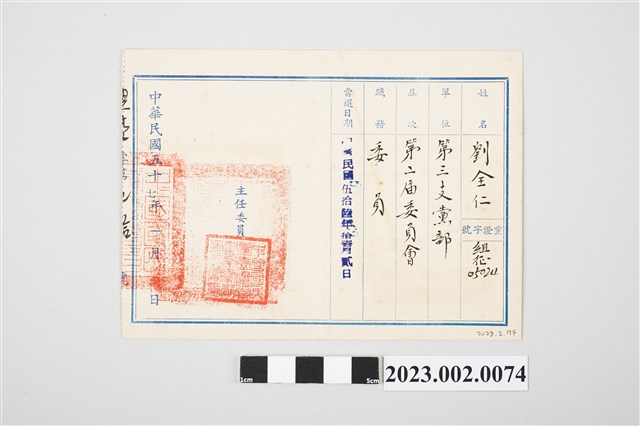 姓名 劉全仁 黨證字號 組征 05074
單位 第三支黨部
屆次 第二届委員會
職務 委員
當選日期 民國伍拾陸年拾壹月貳日
主任委員
中華民國五十七年一月 日
2023.2.74
1cm 5cm
2023.002.0074